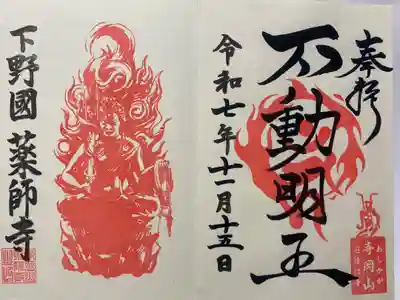 奉拝
不動明王
あしかが
寺岡山
令和七年十一月十五日
下野國 薬師寺